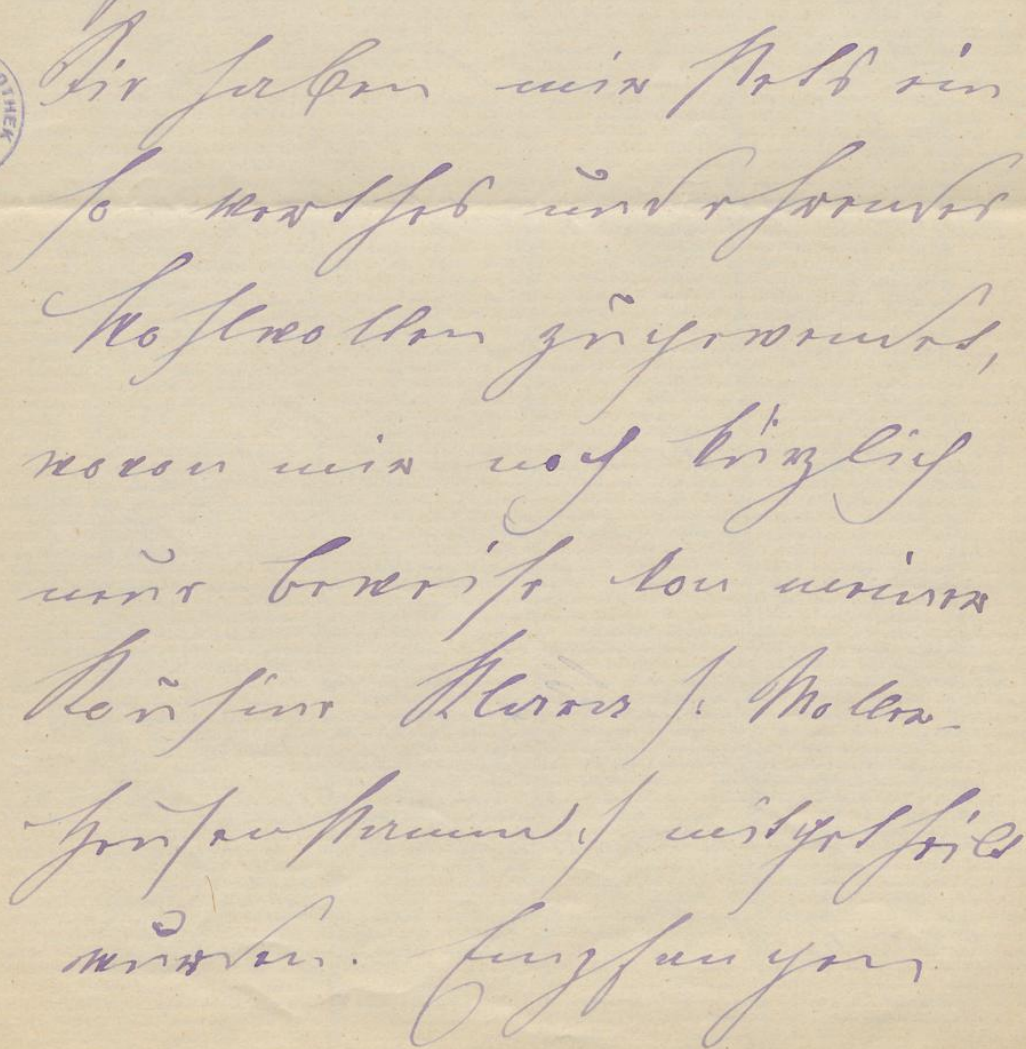 Sie haben mir stets ein
so werthes und ehrendes
Wohlwollen zugewendet,
wovon mir noch kürzlich
neue Beweise von meiner
Kousine Klara /: Moller-
Heusenstamm :/ mitgetheilt
wurden. Empfangen